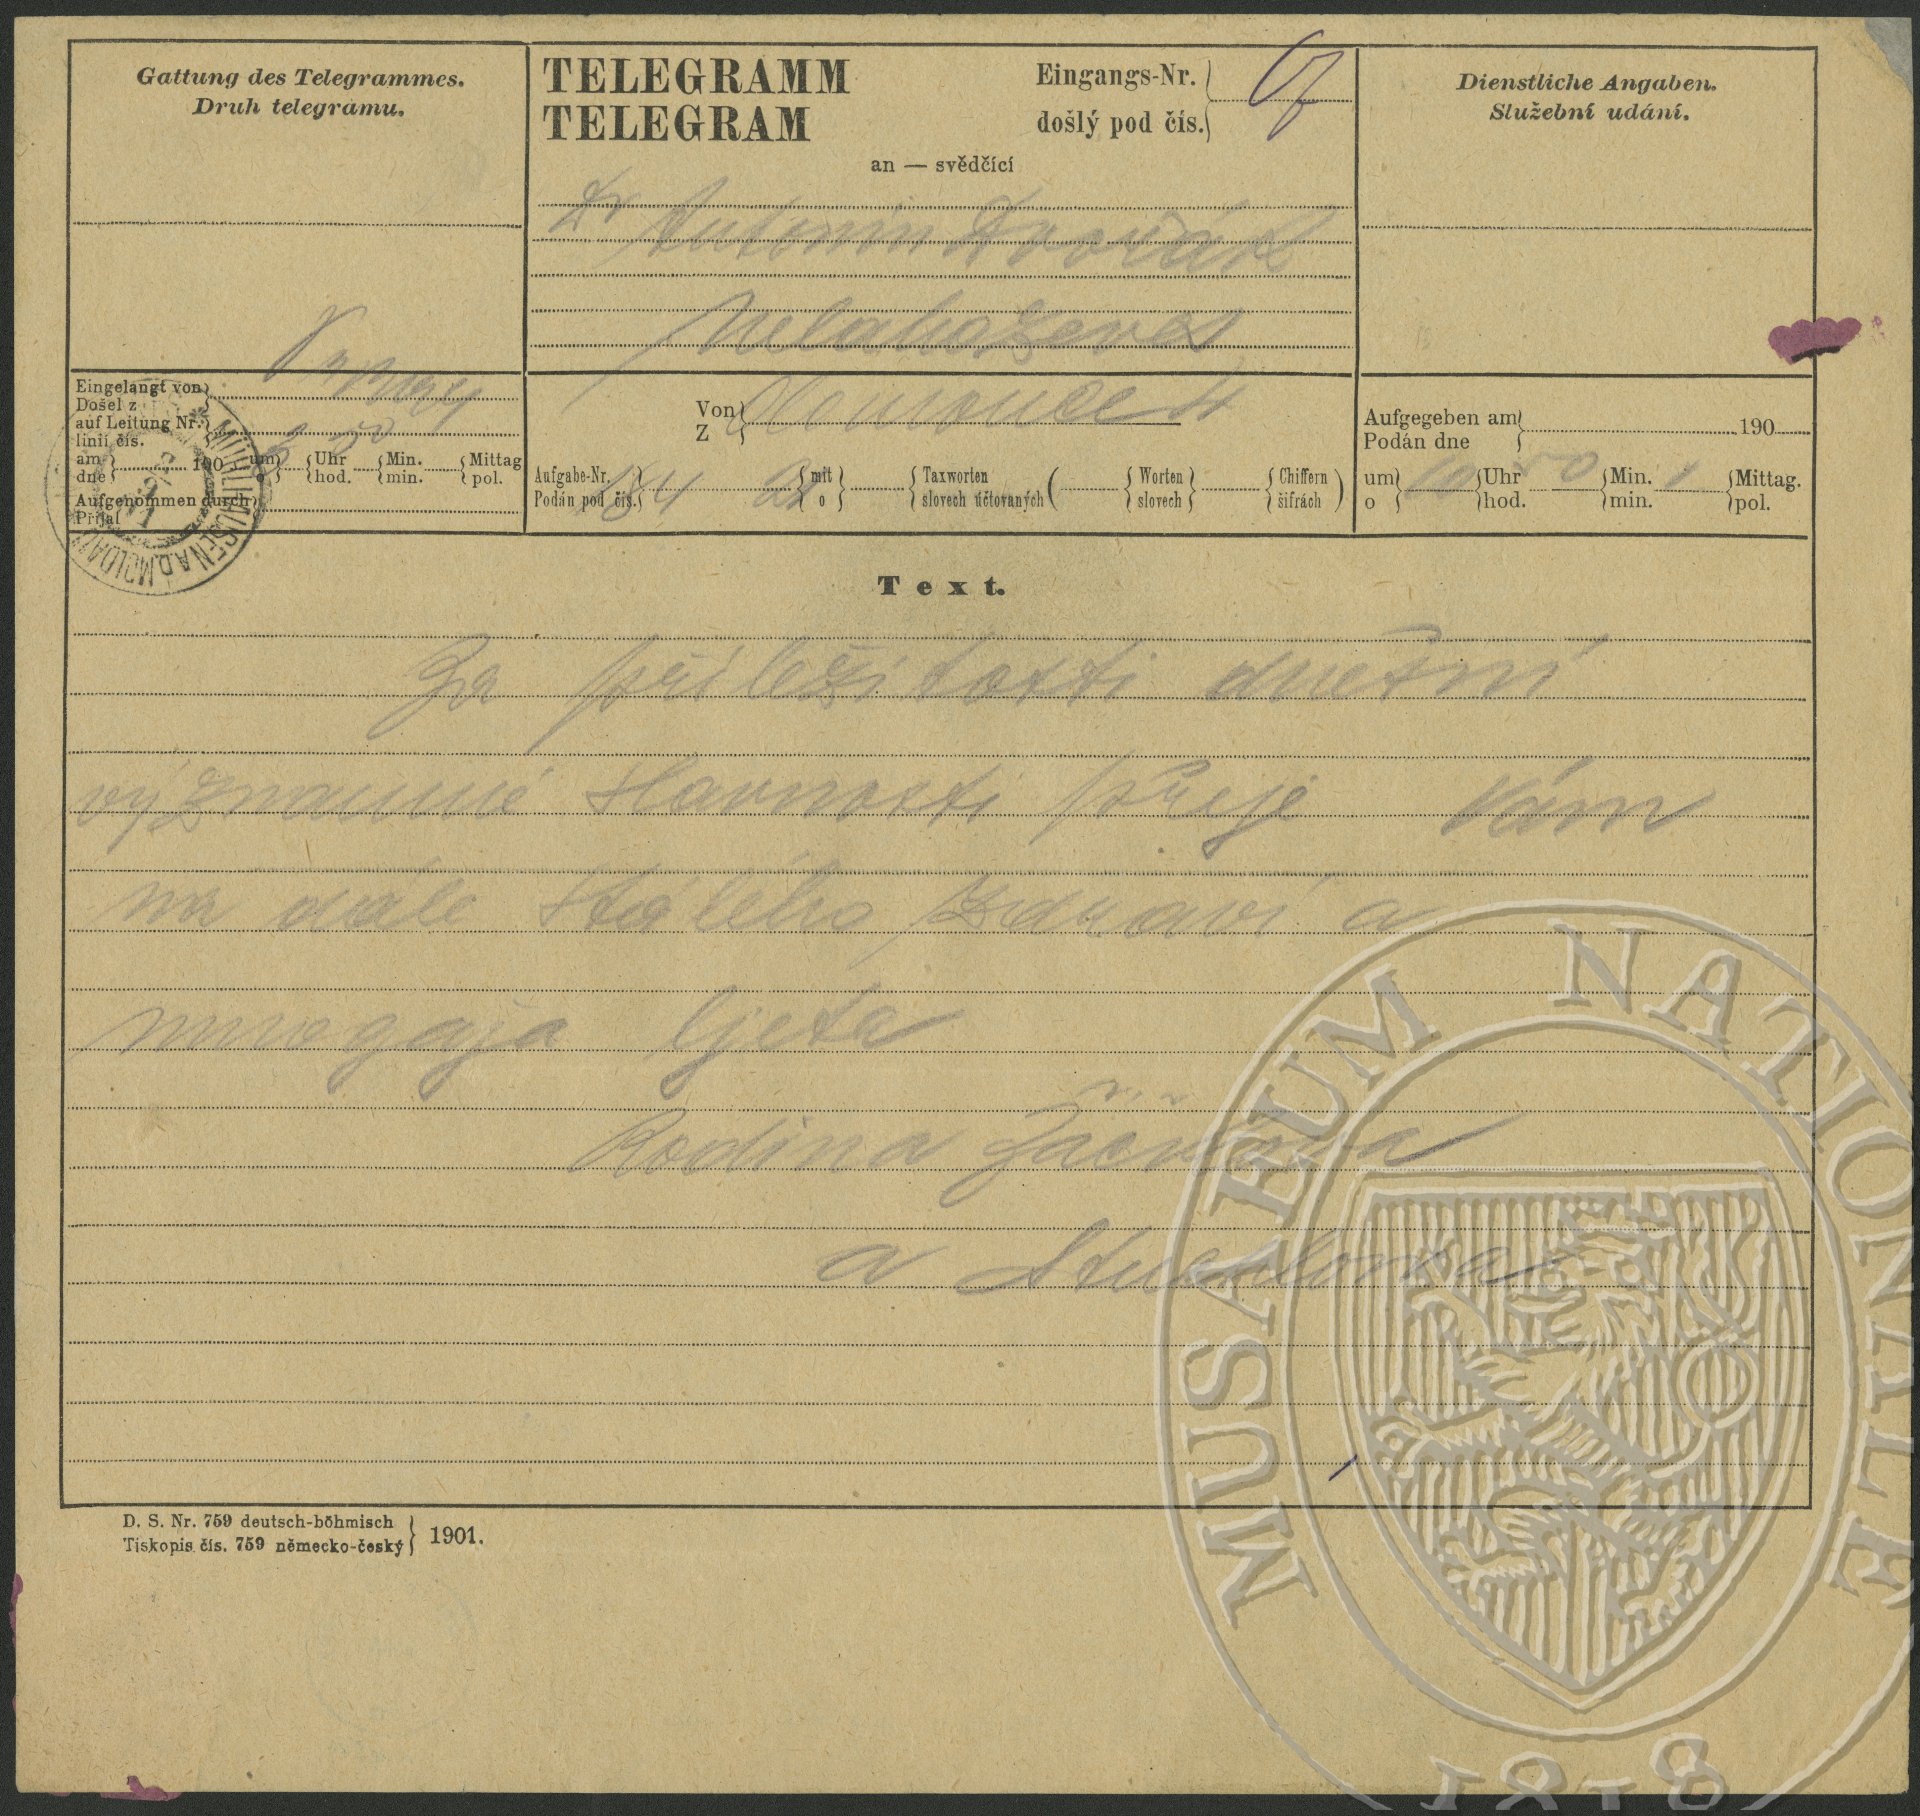 Gattung des Telegrammes.
Druh telegramu.
TELEGRAMM
TELEGRAM
Eingangs-Nr.
došlý pod čís.
an — svědčící
Dr Antonín Dvořák
Nelahozeves
Dienstliche Angaben.
Služební udání.
Eingelangt von
Došel z
auf Leitung Nr.
linii čís.
am
dne
190
um
o
Uhr
hod.
Min.
min.
Mittag
pol.
Aufgenommen durch
Přijal
MÜHLHAUSEN A.D. MOLDAU
Von
Z
Aufgabe-Nr.
Podán pod čís.
184
mit
o
Taxworten
slovech účtovaných
(
Worten
slovech
Chiffern
šifrách
)
Aufgegeben am
Podán dne
190
um
o
10
Uhr
hod.
50
Min.
min.
Mittag.
pol.
Text.
Za příležitosti dnešní
významné slavnosti přeje Vám
na dále stálého zdraví a
mnogaja ljeta
Rodina
a
D. S. Nr. 759 deutsch-böhmisch
Tiskopis čís. 759 německo-český
1901.
MUSAEUM NATIONALE
1818